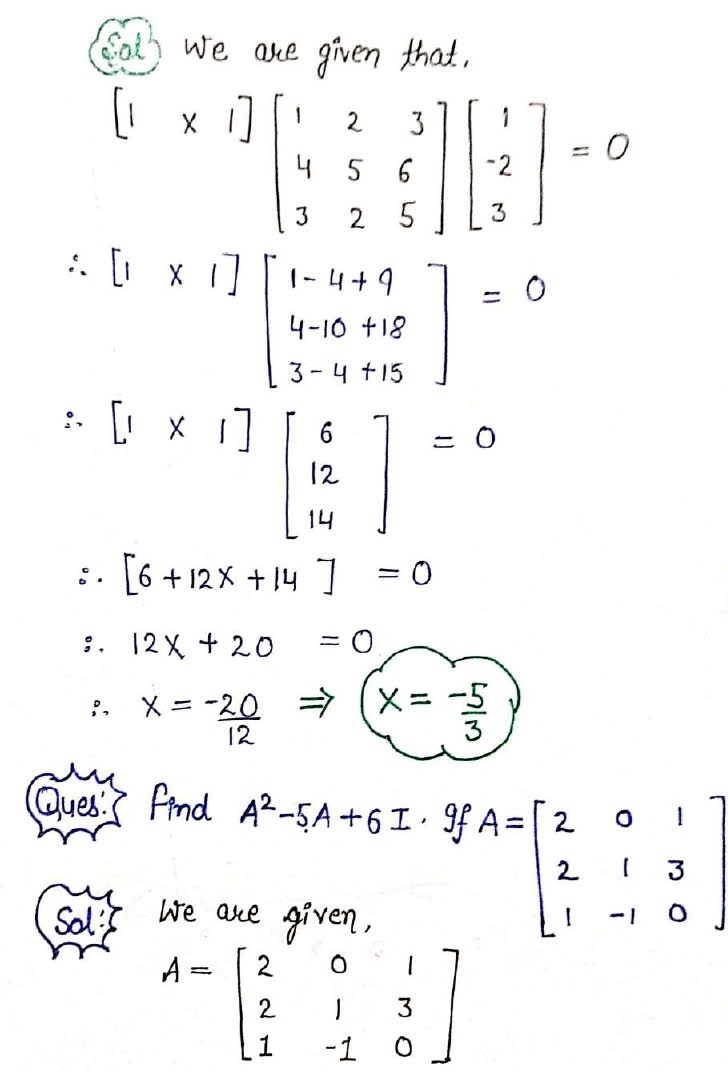 Sol We are given that,
[1 x 1] [1 2 3 [1
4 5 6 -2 = 0
3 2 5] 3]
∴ [1 x 1] [1-4+9
4-10+18 = 0
3-4+15]
∴ [1 x 1] [6 = 0
12
14]
∴ [6+12x+14] = 0
∴ 12x + 20 = 0
∴ x = -20/12 ⇒ x = -5/3
Ques: Find A²-5A+6I. If A = [2 0 1
2 1 3
1 -1 0]
Sol: We are given,
A = [2 0 1
2 1 3
1 -1 0]